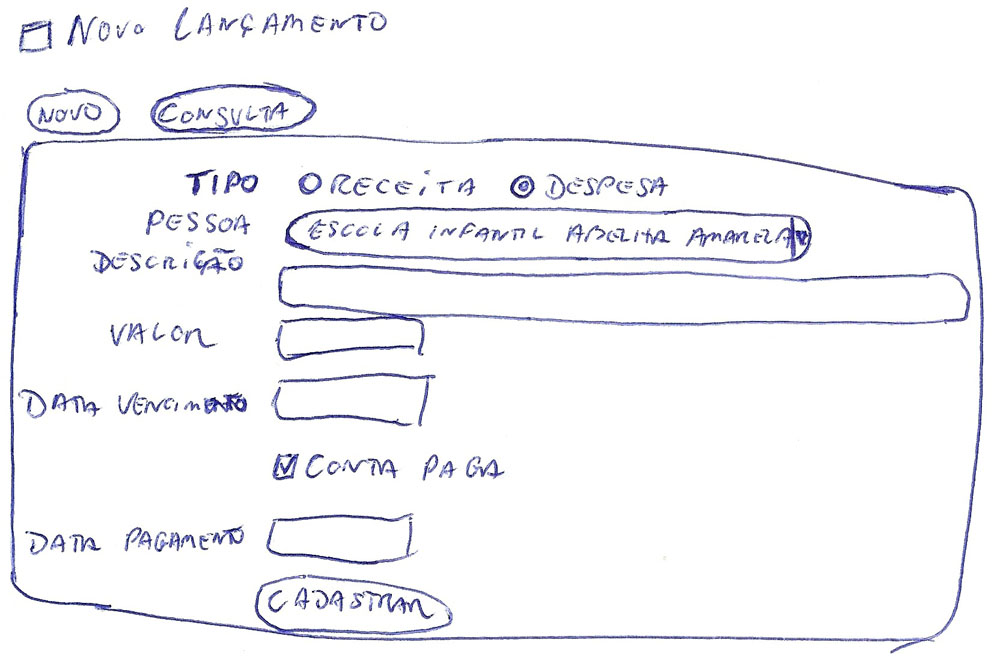 NOVO LANÇAMENTO
NOVO CONSULTA
TIPO RECEITA DESPESA
PESSOA ESCOLA INFANTIL ABELHA AMARELA
DESCRIÇÃO
VALOR
DATA VENCIMENTO
CONTA PAGA
DATA PAGAMENTO
CADASTRAR